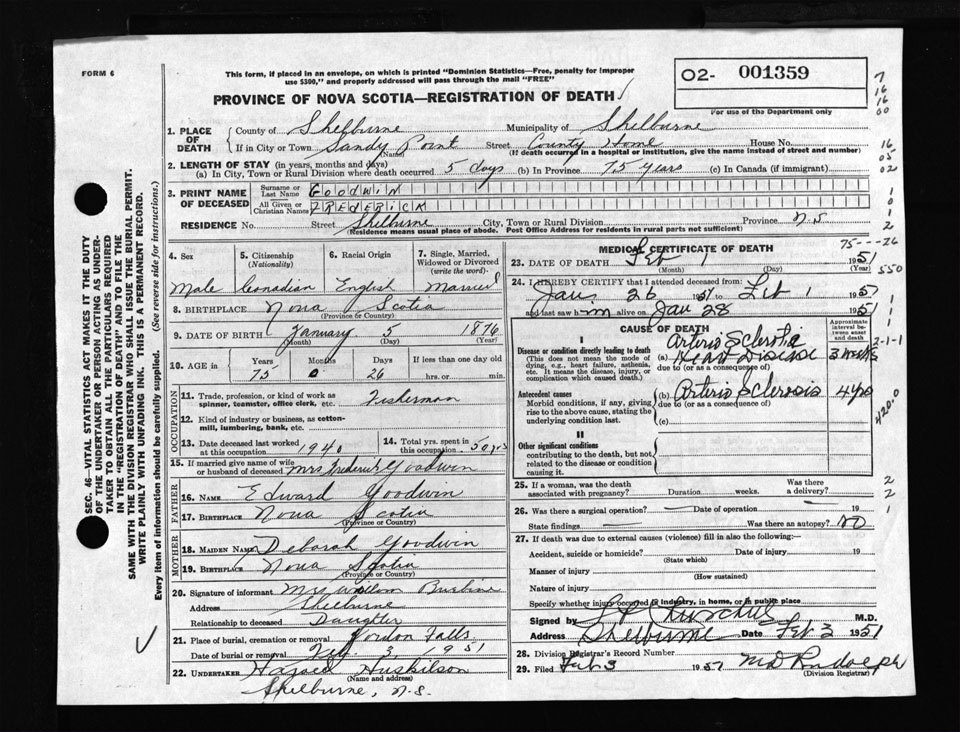 FORM 6
This form, if placed in an envelope, on which is printed "Dominion Statistics—Free, penalty for improper
use $300," and properly addressed will pass through the mail "FREE"
O2- 001359
For use of the Department only
PROVINCE OF NOVA SCOTIA—REGISTRATION OF DEATH
1. PLACE OF DEATH { County of Shelburne Municipality of Shelburne
If in City or Town Sandy Point Street County Home House No.
(Name) (If death occurred in a hospital or institution, give the name instead of street and number)
2. LENGTH OF STAY (in years, months and days)
(a) In City, Town or Rural Division where death occurred 5 days (b) In Province 75 years (c) In Canada (if immigrant)
3. PRINT NAME OF DECEASED { Surname or Last Name GOODWIN
All Given or Christian Names FREDERICK
RESIDENCE No. Street Shelburne City, Town or Rural Division Province N.S
(Residence means usual place of abode. Post Office Address for residents in rural parts not sufficient)
4. Sex 5. Citizenship (Nationality) 6. Racial Origin 7. Single, Married, Widowed or Divorced (write the word)
Male Canadian English Married
8. BIRTHPLACE Nova Scotia
(Province or Country)
9. DATE OF BIRTH January 5 1876
(Month) (Day) (Year)
10. AGE in { Years Months Days If less than one day old
75 0 26 hrs. or min.
OCCUPATION
11. Trade, profession, or kind of work as spinner, teamster, office clerk, etc. Fisherman
12. Kind of industry or business, as cotton-mill, lumbering, bank, etc.
13. Date deceased last worked at this occupation 1940 14. Total yrs. spent in this occupation 50 yrs
15. If married give name of wife or husband of deceased Mrs Frederick Goodwin
FATHER
16. NAME Edward Goodwin
17. BIRTHPLACE Nova Scotia
(Province or Country)
MOTHER
18. MAIDEN NAME Deborah Goodwin
19. BIRTHPLACE Nova Scotia
(Province or Country)
20. Signature of informant Mrs
Address Shelburne
Relationship to deceased Daughter
21. Place of burial, cremation or removal Jordon Falls
Date of burial or removal Feb. 3, 1951
22. UNDERTAKER Huskilson
(Name and address)
Shelburne, N.S.
MEDICAL CERTIFICATE OF DEATH
23. DATE OF DEATH Feb 1 1951
(Month) (Day) (Year)
24. I HEREBY CERTIFY that I attended deceased from:
Jan 26 1951 to Feb 1 1951
and last saw him alive on Jan 28 1951
CAUSE OF DEATH
Approximate interval between onset and death
I
Disease or condition directly leading to death
(This does not mean the mode of dying, e.g., heart failure, asthenia, etc. It means the disease, injury, or complication which caused death.)
(a) Arterio Sclerotic Heart Disease 3 weeks
due to (or as a consequence of)
Antecedent causes
Morbid conditions, if any, giving rise to the above cause, stating the underlying condition last.
(b) Arterio Sclerosis 4 yrs
due to (or as a consequence of)
(c)
II
Other significant conditions
contributing to the death, but not related to the disease or condition causing it.
25. If a woman, was the death associated with pregnancy? Duration weeks. Was there a delivery?
26. Was there a surgical operation? — Date of operation — 19
State findings — Was there an autopsy? NO
27. If death was due to external causes (violence) fill in also the following:—
Accident, suicide or homicide? Date of injury 19
(State which)
Manner of injury
(How sustained)
Nature of injury
Specify whether injury occurred in industry, in home, or in public place
Signed by Churchill M.D.
Address Shelburne Date Feb 3 1951
28. Division Registrar's Record Number
29. Filed Feb 3 1951 M D Rudolph
(Division Registrar)
SEC. 46—VITAL STATISTICS ACT MAKES IT THE DUTY
OF THE UNDERTAKER OR PERSON ACTING AS UNDER-
TAKER TO OBTAIN ALL THE PARTICULARS REQUIRED
IN THE "REGISTRATION OF DEATH" AND TO FILE THE
SAME WITH THE DIVISION REGISTRAR WHO SHALL ISSUE THE BURIAL PERMIT.
WRITE PLAINLY WITH UNFADING INK. THIS IS A PERMANENT RECORD.
Every item of information should be carefully supplied. (See reverse side for instructions.)
7
16
16
00
16
05
02
1
0
1
2
75---26
550
1
1
1
2-1-1
420.0
2
2
1